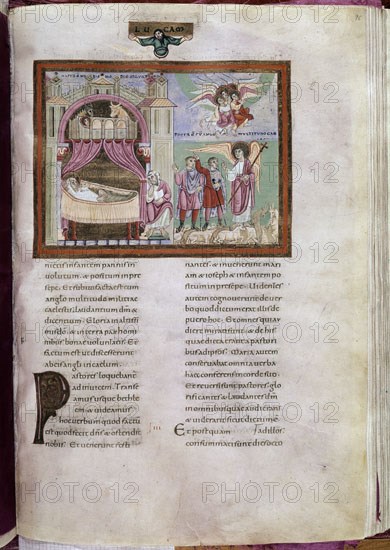 LUCAM
nietis infantem pannis in
uolutum. & positum in pre
sepe. Et subito facta est cum
anglo multitudo militiae
caelestis. laudantium dm &
dicentium. Gloria in altissi
mis do. & in terra pax homi
nibus bonae uoluntatis. Et
factum est ut discesserunt
ab eis angli in caelum.
Pastores loquebant
ad inuicem. Transe
amus usque bethle
em. & uideamus
hoc uerbum quod factu
est quod fecit dns & ostendit
nobis. Et uenerunt festi
nantes. & inuenerunt mari
am & ioseph & infantem po
situm in presepe. Uidentes
autem cognouerunt de uer
bo quod dictum erat illis de
puero hoc. Et omnes qui au
dierunt mirati sunt. & de his
quae dicta erant a pastori
bus ad ipsos. Maria autem
conseruabat omnia uerba
haec. conferens in corde suo.
Et reuersi sunt pastores. glo
rificantes & laudantes dm
in omnibus quae audierant
& uiderant sicut dictu est
Et postquam ad illos.
consummati sunt dies octo
PHOTO 12